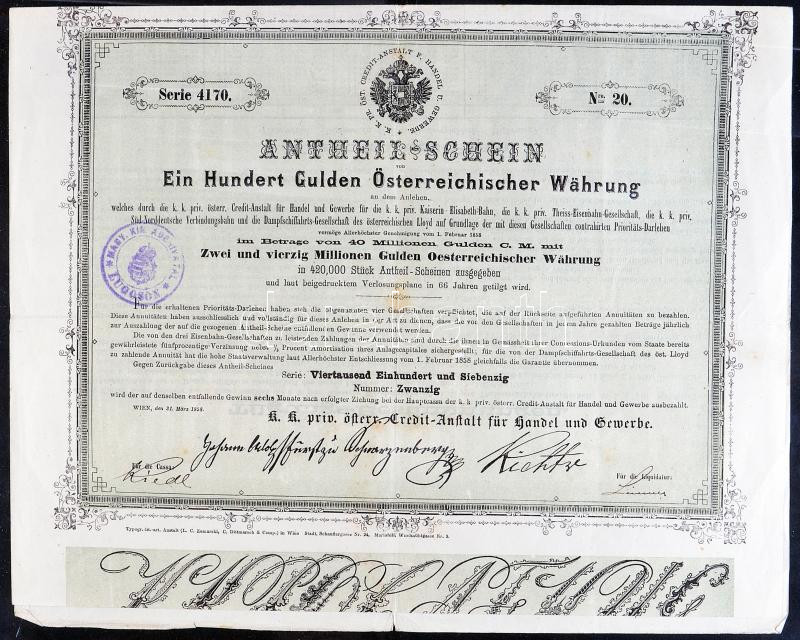 K. K. PR. ÖST. CREDIT-ANSTALT F. HANDEL U. GEWERBE.
Serie 4170.
Nro. 20.
ANTHEIL-SCHEIN
von
Ein Hundert Gulden Österreichischer Währung
an dem Anlehen,
welches durch die k. k. priv. österr. Credit-Anstalt für Handel und Gewerbe für die k. k. priv. Kaiserin Elisabeth-Bahn, die k. k. priv. Theiss-Eisenbahn-Gesellschaft, die k. k. priv.
Süd-Norddeutsche Verbindungsbahn und die Dampfschiffahrts-Gesellschaft des österreichischen Lloyd auf Grundlage der mit diesen Gesellschaften contrahirten Prioritäts-Darlehen
vermöge Allerhöchster Genehmigung vom 1. Februar 1858
im Betrage von 40 Millionen Gulden C. M. mit
Zwei und vierzig Millionen Gulden Oesterreichischer Währung
in 420,000 Stück Antheil-Scheinen ausgegeben
und laut beigedrucktem Verlosungsplane in 66 Jahren getilgt wird.
MAGY. KIR. ADÓHIVATAL
LUGOSON
Für die erhaltenen Prioritäts-Darlehen haben sich die obgenannten vier Gesellschaften verpflichtet, die auf der Rückseite aufgeführten Annuitäten zu bezahlen.
Diese Annuitäten haben ausschliesslich und vollständig für dieses Anlehen in der Art zu dienen, dass die von den Gesellschaften in jedem Jahre gezahlten Beträge jährlich
zur Auszahlung der auf die gezogenen Antheil-Scheine entfallenden Gewinne verwendet werden.
Die von den drei Eisenbahn-Gesellschaften zu leistenden Zahlungen der Annuitäten sind durch die ihnen in Gemässheit ihrer Concessions-Urkunden vom Staate bereits
gewährleistete fünfprozentige Verzinsung nebst 1/5 Procent Amortisation ihres Anlagscapitales sichergestellt; für die von der Dampfschiffahrts-Gesellschaft des öst. Lloyd
zu zahlende Annuität hat die hohe Staatsverwaltung laut Allerhöchster Entschliessung vom 1. Februar 1858 gleichfalls die Garantie übernommen.
Gegen Zurückgabe dieses Antheil-Scheines
Serie: Viertausend Einhundert und Siebenzig
Nummer: Zwanzig
wird der auf denselben entfallende Gewinn sechs Monate nach erfolgter Ziehung bei der Hauptcassa der k. k. priv. österr. Credit-Anstalt für Handel und Gewerbe ausbezahlt.
WIEN, den 31. März 1858.
K. K. priv. österr. Credit-Anstalt für Handel und Gewerbe.
Johann Adolf Fürst zu Schwarzenberg
Richter
Für die Cassa:
Riedl
Für die Liquidatur:
Typogr. lit. art. Anstalt (L. C. Zamarski, C. Dittmarsch & Comp.) in Wien Stadt, Schauflergasse Nr. 24,